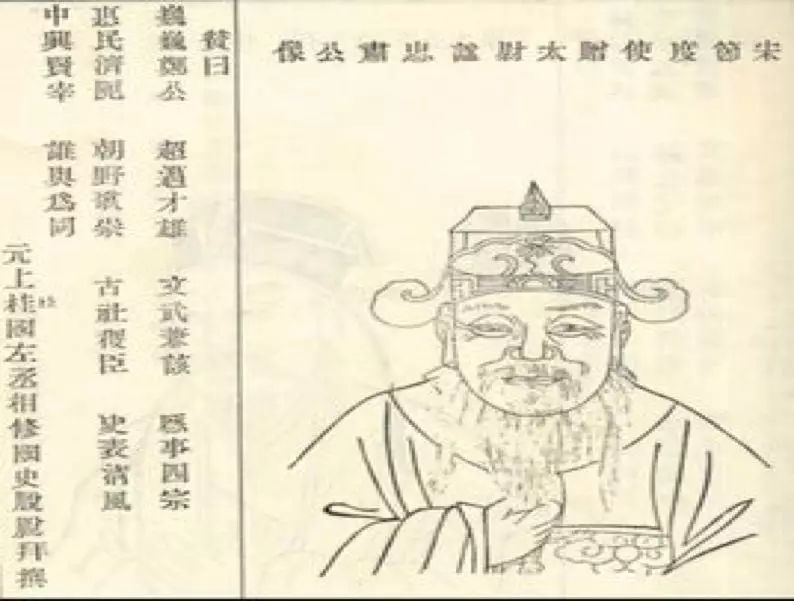 宋節度使贈太尉諡忠肅公像
贊曰
巍巍鄭公 超邁才雄 文武兼該 歷事四宗
惠民濟 朝野崇 古社稷臣 史表清風
中興賢宰 誰與爲同
元上桂國左丞相修國史脫脫拜撰